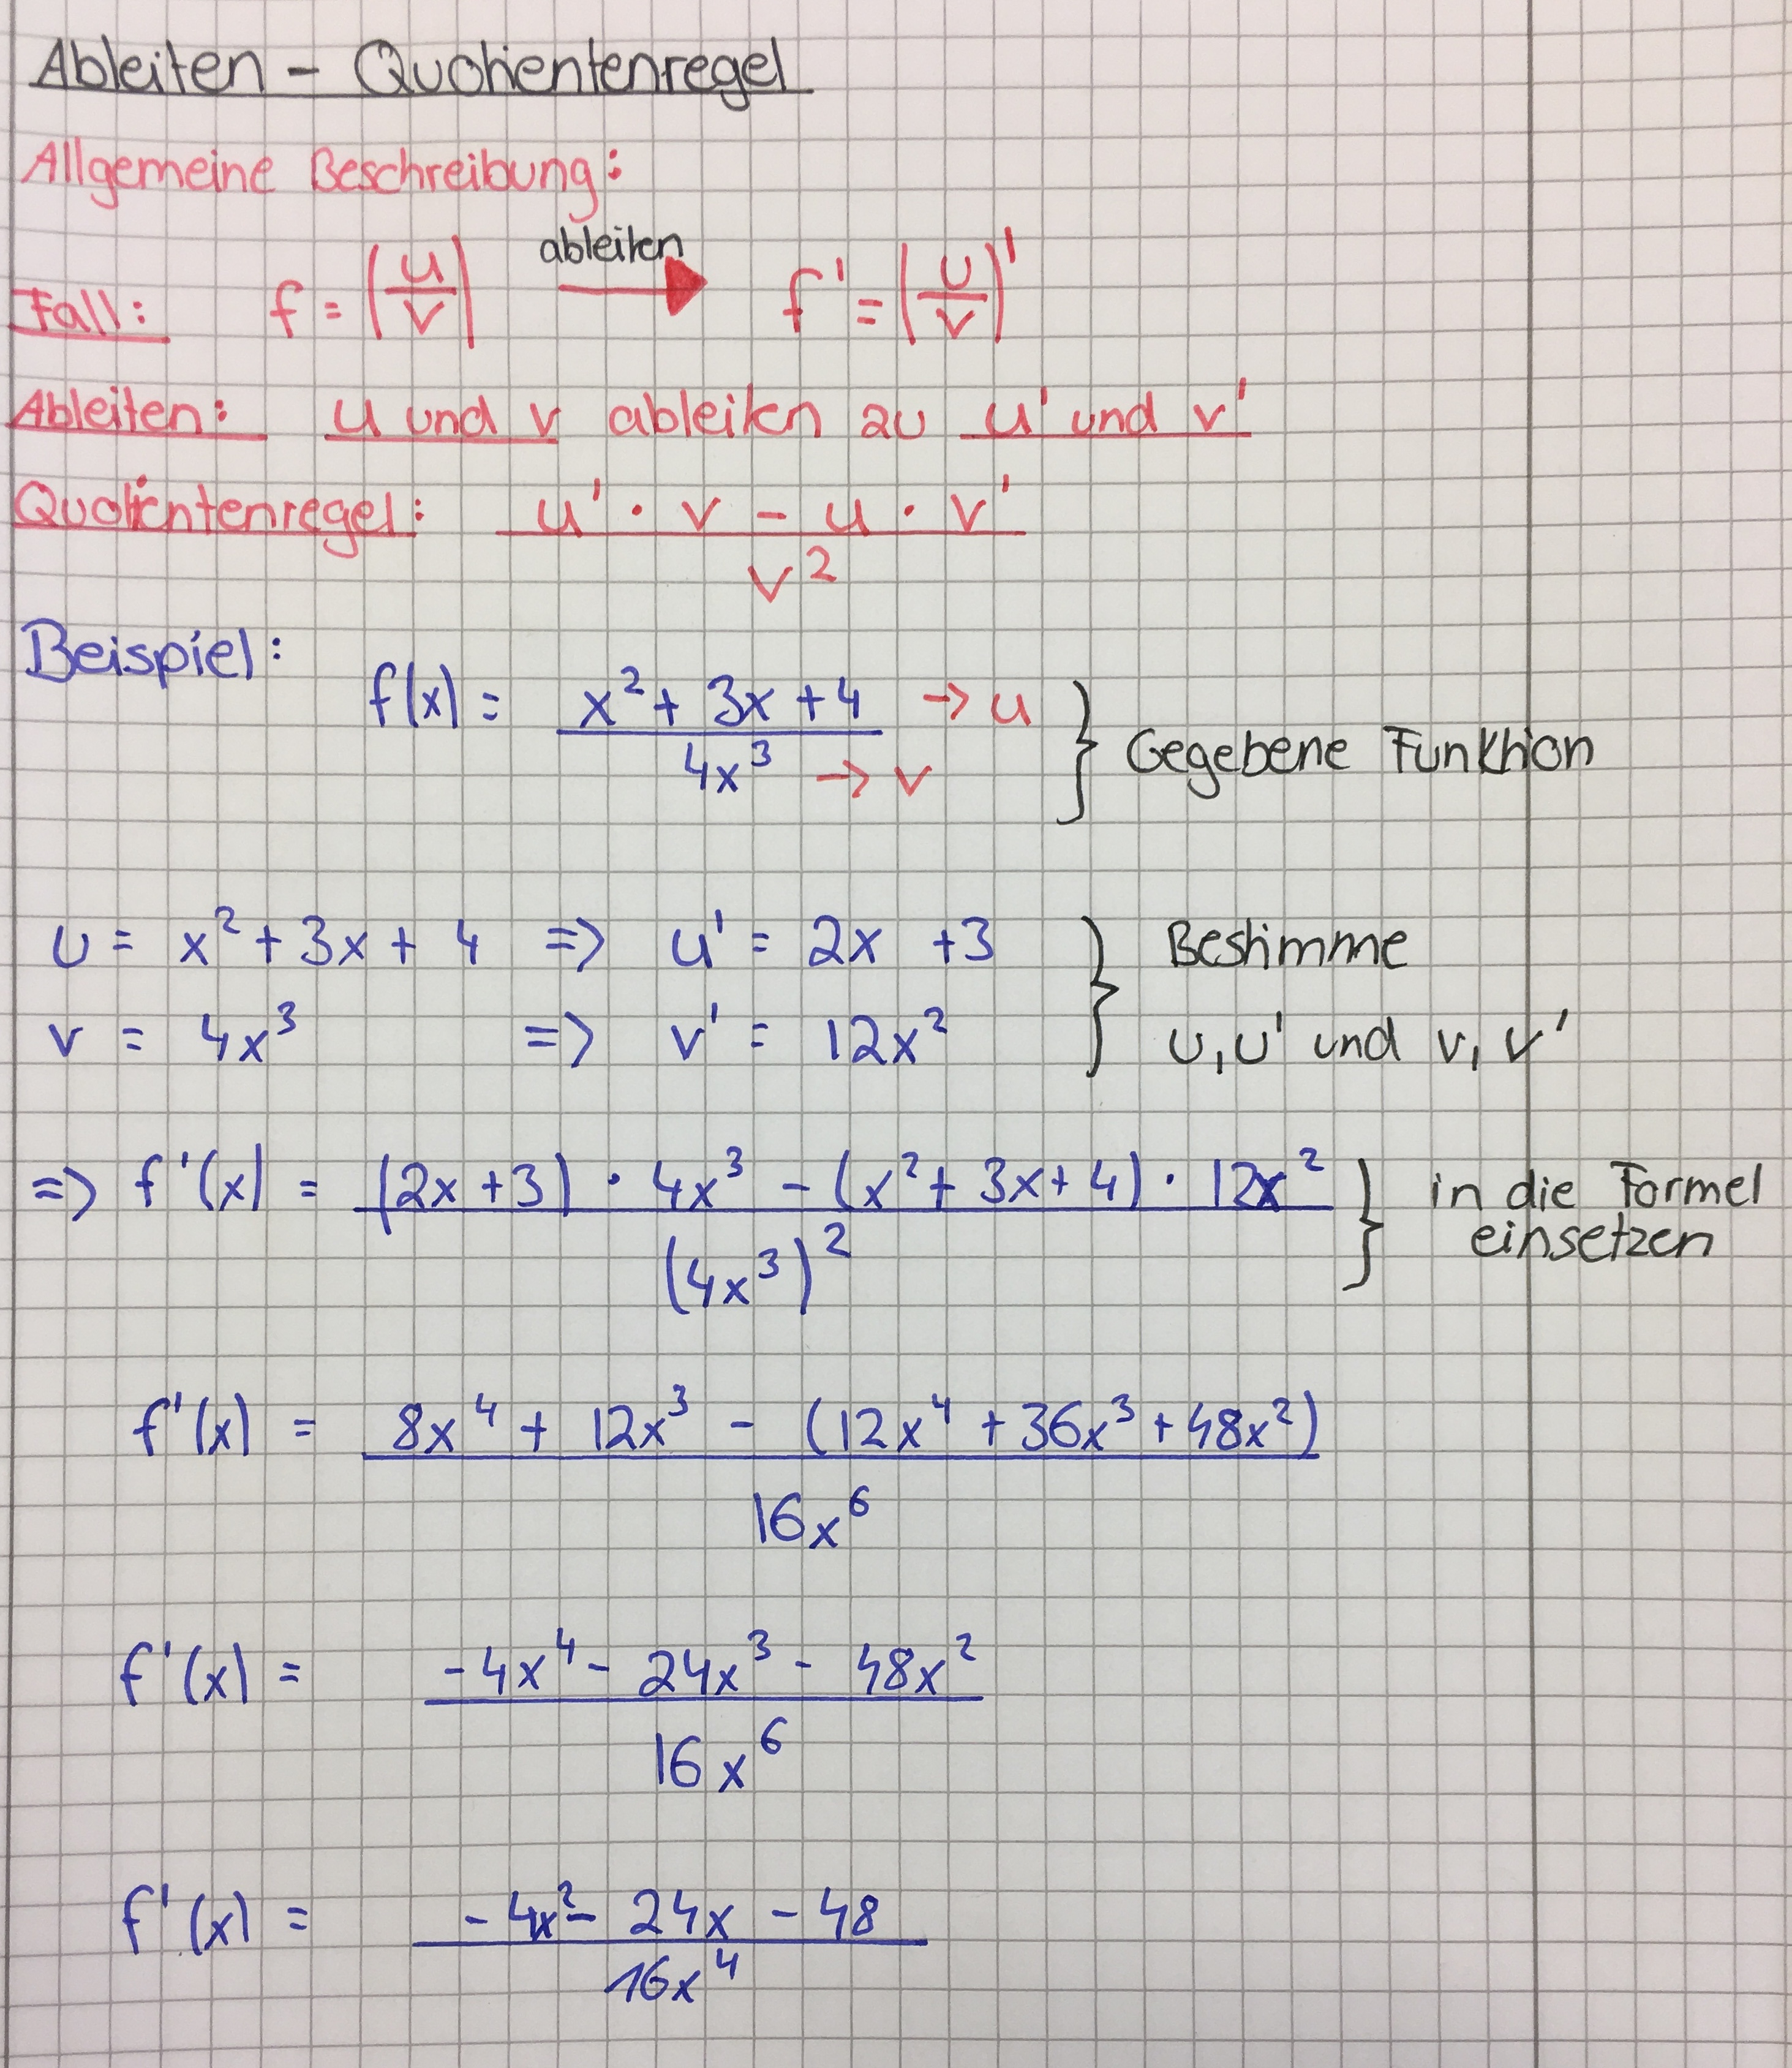 Ableiten - Quotientenregel
Allgemeine Beschreibung:
Fall: f = (u/v) ableiten → f' = (u/v)'
Ableiten: u und v ableiten zu u' und v'
Quotientenregel: u' · v - u · v'
v²
Beispiel:
f(x) = x² + 3x + 4 → u
4x³ → v
} Gegebene Funktion
u = x² + 3x + 4 => u' = 2x + 3 } Bestimme
v = 4x³ => v' = 12x² u, u' und v, v'
=> f'(x) = (2x + 3) · 4x³ - (x² + 3x + 4) · 12x² } in die Formel
(4x³)² einsetzen
f'(x) = 8x⁴ + 12x³ - (12x⁴ + 36x³ + 48x²)
16x⁶
f'(x) = -4x⁴ - 24x³ - 48x²
16x⁶
f'(x) = -4x² - 24x - 48
16x⁴